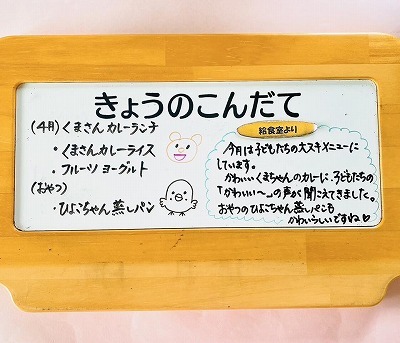 きょうのこんだて
(4月) くまさんカレーランチ
・くまさんカレーライス
・フルーツ ヨーグルト
(おやつ)
ひよこちゃん蒸しパン
給食室より
今月は子どもたちの大スキメニューに
しています。
かわいいくまちゃんのカレーに、子どもたちの
「かわいい〜」の声が聞こえてきました。
おやつのひよこちゃん蒸しパンも
かわいらしいですね♡